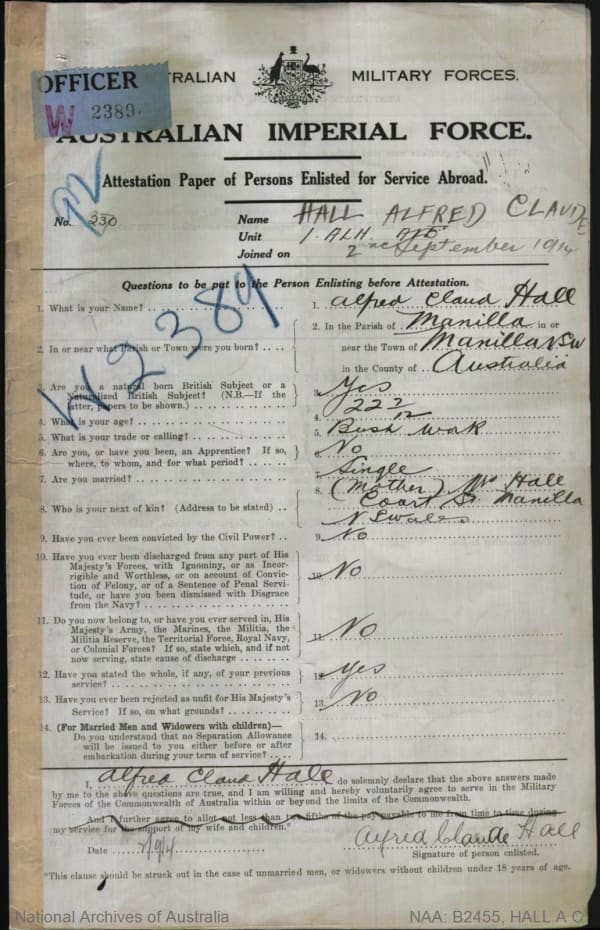 OFFICER
W 2389
TRALIAN MILITARY FORCES.
AUSTRALIAN IMPERIAL FORCE.
Attestation Paper of Persons Enlisted for Service Abroad.
No. 230
Name HALL ALFRED CLAUDE
Unit 1. ALH.
Joined on 2nd September 1914
W2389
Questions to be put to the Person Enlisting before Attestation.
1. What is your Name? 1. Alfred Claud Hall
2. In or near what Parish or Town were you born? 2. In the Parish of Manilla in or
near the Town of Manilla NSW
in the County of Australia
3. Are you a natural born British Subject or a Naturalized British Subject? (N.B.—If the latter, papers to be shown.) 3. Yes
4. What is your age? 4. 22 3/12
5. What is your trade or calling? 5. Bush Work
6. Are you, or have you been, an Apprentice? If so, where, to whom, and for what period? 6. No
7. Are you married? 7. Single
8. Who is your next of kin? (Address to be stated) 8. (Mother) Mrs Hall
Court St. Manilla
N S Wales
9. Have you ever been convicted by the Civil Power? 9. No
10. Have you ever been discharged from any part of His
Majesty's Forces, with Ignominy, or as Incor-
rigible and Worthless, or on account of Convic-
tion of Felony, or of a Sentence of Penal Servi-
tude, or have you been dismissed with Disgrace
from the Navy? 10. No
11. Do you now belong to, or have you ever served in, His
Majesty's Army, the Marines, the Militia, the
Militia Reserve, the Territorial Force, Royal Navy,
or Colonial Forces? If so, state which, and if not
now serving, state cause of discharge 11. No
12. Have you stated the whole, if any, of your previous
service? 12. Yes
13. Have you ever been rejected as unfit for His Majesty's
Service? If so, on what grounds? 13. No
14. (For Married Men and Widowers with children)—
Do you understand that no Separation Allowance
will be issued to you either before or after
embarkation during your term of service? 14.
I, Alfred Claud Hall do solemnly declare that the above answers made
by me to the above questions are true, and I am willing and hereby voluntarily agree to serve in the Military
Forces of the Commonwealth of Australia within or beyond the limits of the Commonwealth.
And I further agree to allot not less than two-fifths of the pay payable to me from time to time during
my service for the support of my wife and children.*
Date 2/9/14
Alfred Claude Hall
Signature of person enlisted.
*This clause should be struck out in the case of unmarried men, or widowers without children under 18 years of age.
National Archives of Australia
NAA: B2455, HALL A C